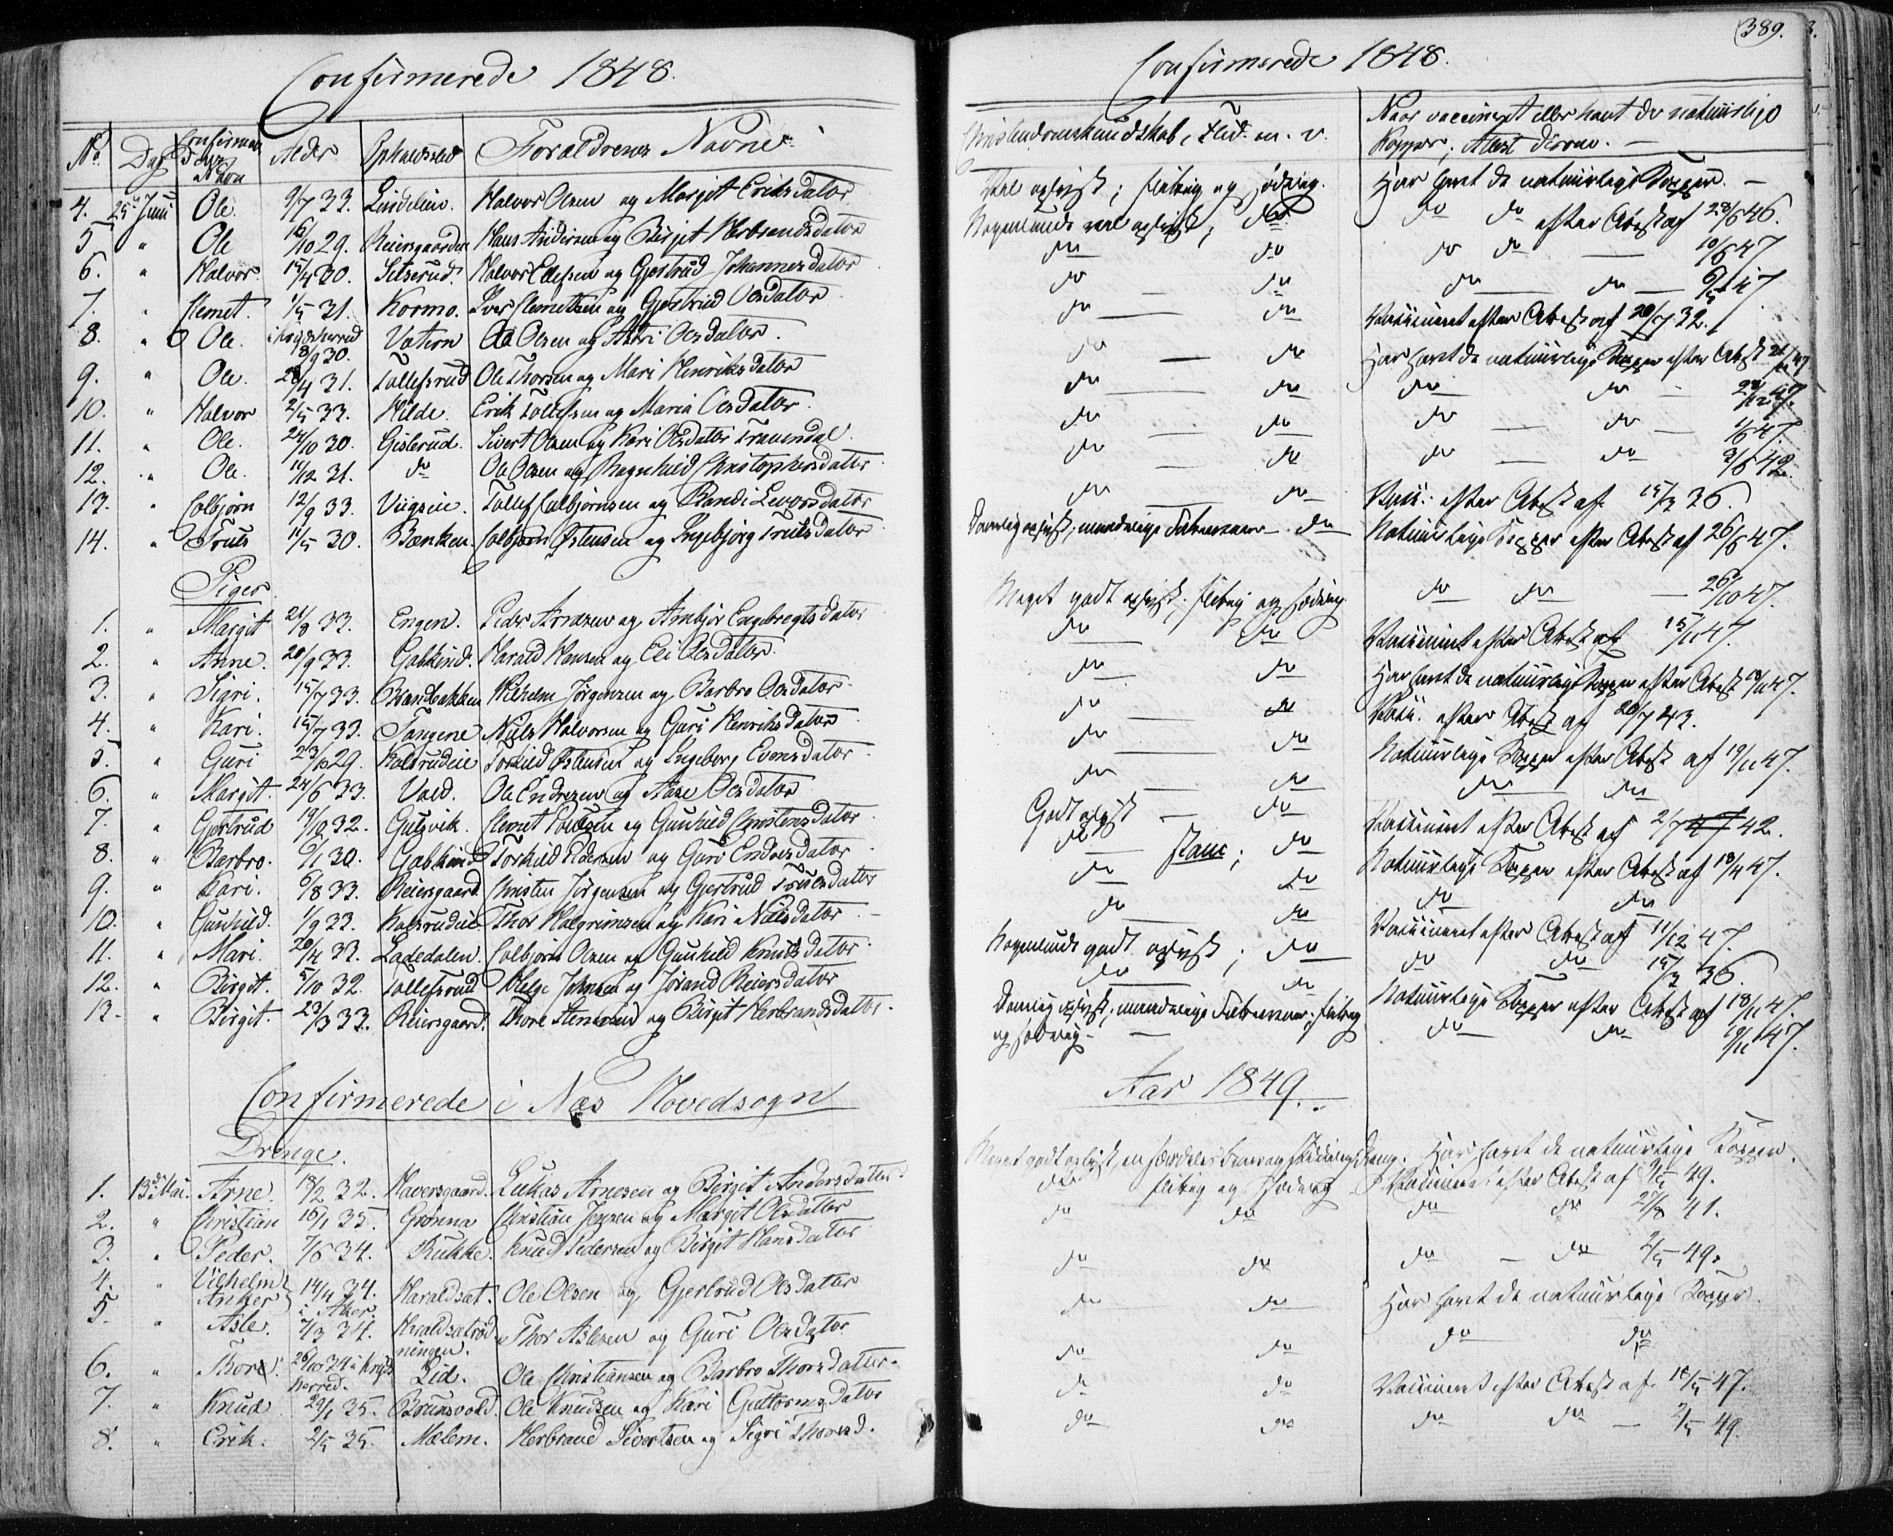 Confirmerede 1848.
No. Dag Confirmandens Navn Alder Opholdssted Forældrenes Navne
4. 25de Juni Ole. 9/7 33. Lindelien. Halvor Olsen og Margit Eriksdatter
5 " Ole 16/10 29. Reiersgaarden Hans Andersen og Birgit Herbrandsdatter
6. " Halvor. 15/4 30. Halvor Ellefsen og Gjertrud Johannesdatter
7. " Clemet. 1/5 31. Kormo. Iver Clemetsen og Gjertrud Olsdatter
8. " Ole. 8/9 30. Vation Ole Olsen og Astri Olsdatter.
9. " Ole. 28/4 31. Tollefsrud Ole Thorsen og Mari Henriksdatter
10. " Halvor 2/5 33. Hilde. Erik Tollefsen og Maria Olsdatter.
11. " Ole. 24/10 30. Gislerud. Sivert Olsen og Kari Olsdatter
12. " Ole. 11/12 31. do Ole Olsen og Ragnhild Christophersdatter
13. " Colbjørn 12/9 33. Viigseie. Tollef Colbjørnsen og Randi Levorsdatter
14. " Truls 11/5 30. Brenken. Colbjørn Østensen og Ingebjørg Trulsdatter
Piger
1. " Margit 24/8 33. Engen. Peder Arnesen og Ambjør Engebregtsdatter
2. " Anne. 20/9 33. Gabkind. Harald Hansen og Eli Olsdatter
3. " Sigri. 15/7 33. Brandbakken Vilhelm Jørgensen og Barbro Olsdatter
4. " Kari. 15/7 33. Tangene Niels Halvorsen og Guri Henriksdatter
5. " Guri 23/10 29. Kolsrudeie Torkild Østensen og Ingeborg Evensdatter
6. " Margit. 24/6 33. Vold. Ole Endresen og Aase Olsdatter
7. " Gjertrud 32. Gulsvik. Clemet Poulsen og Gunhild Christensdatter
8. " Barbro. 6/1 30. Gabkind Torkild Pedersen og Guri Endresdatter
9. " Kari. 6/8 33. Reiersgaard. Christen Jørgensen og Gjertrud Trulsdatter
10. " Gunhild. 1/9 33. Kolsrudeie Thor Halgrimsen og Kari Nielsdatter
11. " Mari. 20/4 33. Ladedalen. Colbjørn Olsen og Gunhild Knudsdatter
12. " Birgit. 5/10 32. Tollefsrud Helge Johnsen og Jørand Reiersdatter
13. " Birgit. 23/3 33. Reiersgaard. Thore Stensen og Birgit Herbrandsdatter.
Confirmerede i Næs Hovedsogn
Drenge.
1. 13de Mai. Arne. 18/2 32. Haversgaard. Lukas Arnesen og Birgit Andersdatter.
2. " Christian 16/1 35. Grønna Christian Jensen og Margit Olsdatter
3. " Peder. 7/6 34. Rukke. Knud Pedersen og Birgit Hansdatter
4. " Vilhelm Anker 14/4 34. i Aker Haraldset. Ole Olsen og Gjertrud Olsdatter
5. " Asle. 2/3 34. Haraldsetrødningen. Thor Aslesen og Guri Olsdatter
6. " Thore. 26/10 34 i herred. Lid. Ole Christiansen og Barbro Thorsdatter.
7. " Knud 29/1 35. Brunsvold. Ole Knudsen og Kari Guttormsdatter
8. " Erik. 2/5 35. Mælem. Herbrand Sivertsen og Sigri Thorsd.
389.
Confirmerede 1848.
Christendomskundskab, Flid m. v. Naar vaccineret eller havt de naturlige Kopper; Attest derom.
Vel oplyst; flittig og sædelig. Har havt de naturlige Kopper.
Nogenlunde vel oplyst; do do do efter Attest af 28/6 46.
do do do do 10/6 47
do do do do 6/5 47
do do Vaccineret efter Attest af 20/7 32.
do do Har havt de naturlige Kopper efter Attest
do do do do
do do do do 1/6 47.
do do do do 3/6 42.
do do Vacc: efter Attest af 15/3 36.
Daarlig oplyst, do Naturlige Kopper efter Attest af 26/6 47.
Meget godt oplyst, flittig og sædelig do do 26/10 47.
do do Vaccineret efter Attest af 15/11 47.
do do Har havt de naturlige Kopper efter Attest 18/11 47.
do do Vacc. efter Attest af 20/7 43.
do do Naturlige Kopper efter Attest af 19/11 47.
do do do do
Godt oplyst do Vaccineret efter Attest af 2/7 42.
do do Naturlige Kopper efter Attest af 18/4 47.
do do do do
do do Vaccineret efter Attest af 11/12 47.
Nogenlunde godt oplyst; do do do 15/3 36.
do do Naturlige Kopper efter Attest af 18/11 47.
Daarlig oplyst, flittig og sædelig do do 19/11 47.
Aar 1849.
Meget godt oplyst, en særdeles Dreng. Har havt de naturlige Kopper.
do flittig og sædelig Vaccineret efter Attest af 9/5 49.
do do do do 27/8 41.
do do do do 2/5 49.
do do Har havt de naturlige Kopper.
do do do do
do do Vaccineret efter Attest af 18/5 47.
do do do do 2/5 49.